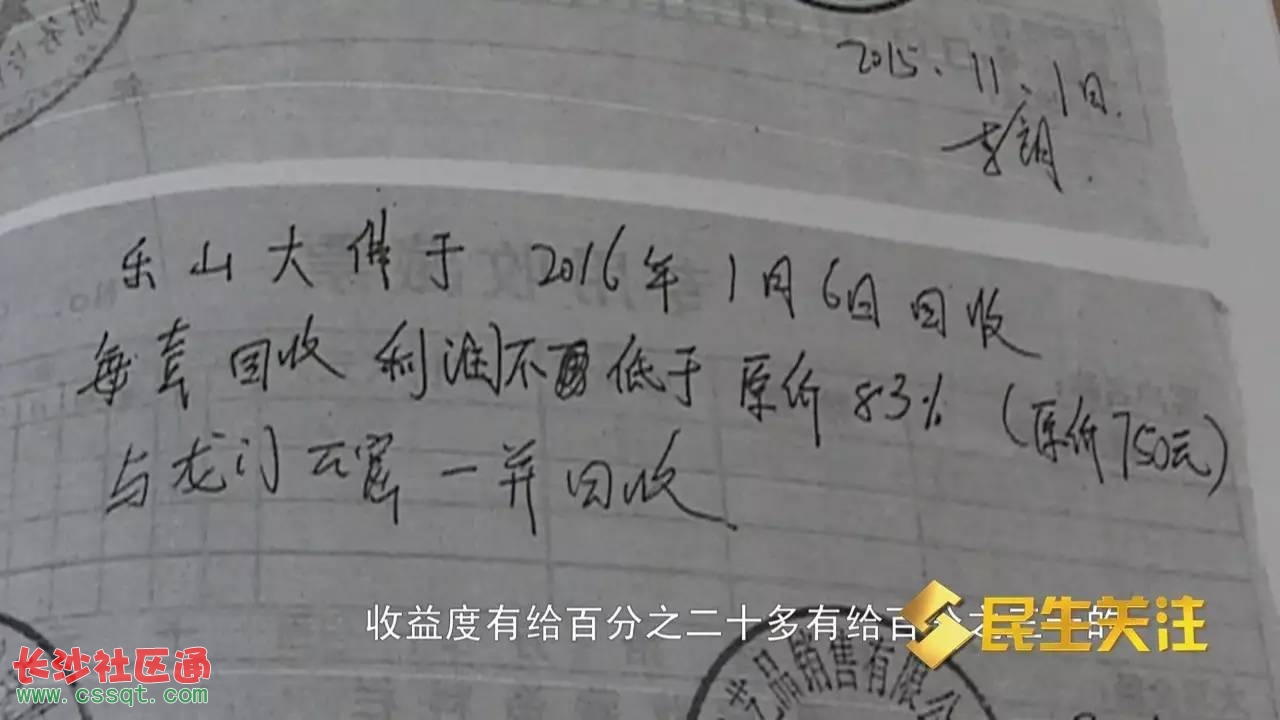 2015.11.1日.
乐山大佛于2016年1月6日回收
每套回收利润不低于原价83%(原价750元)
与龙门石窟一并回收
收益度有给百分之二十多有给百分之三十的
民生关注
长沙社区通
www.cssqt.com
艺品销售有限公
财务